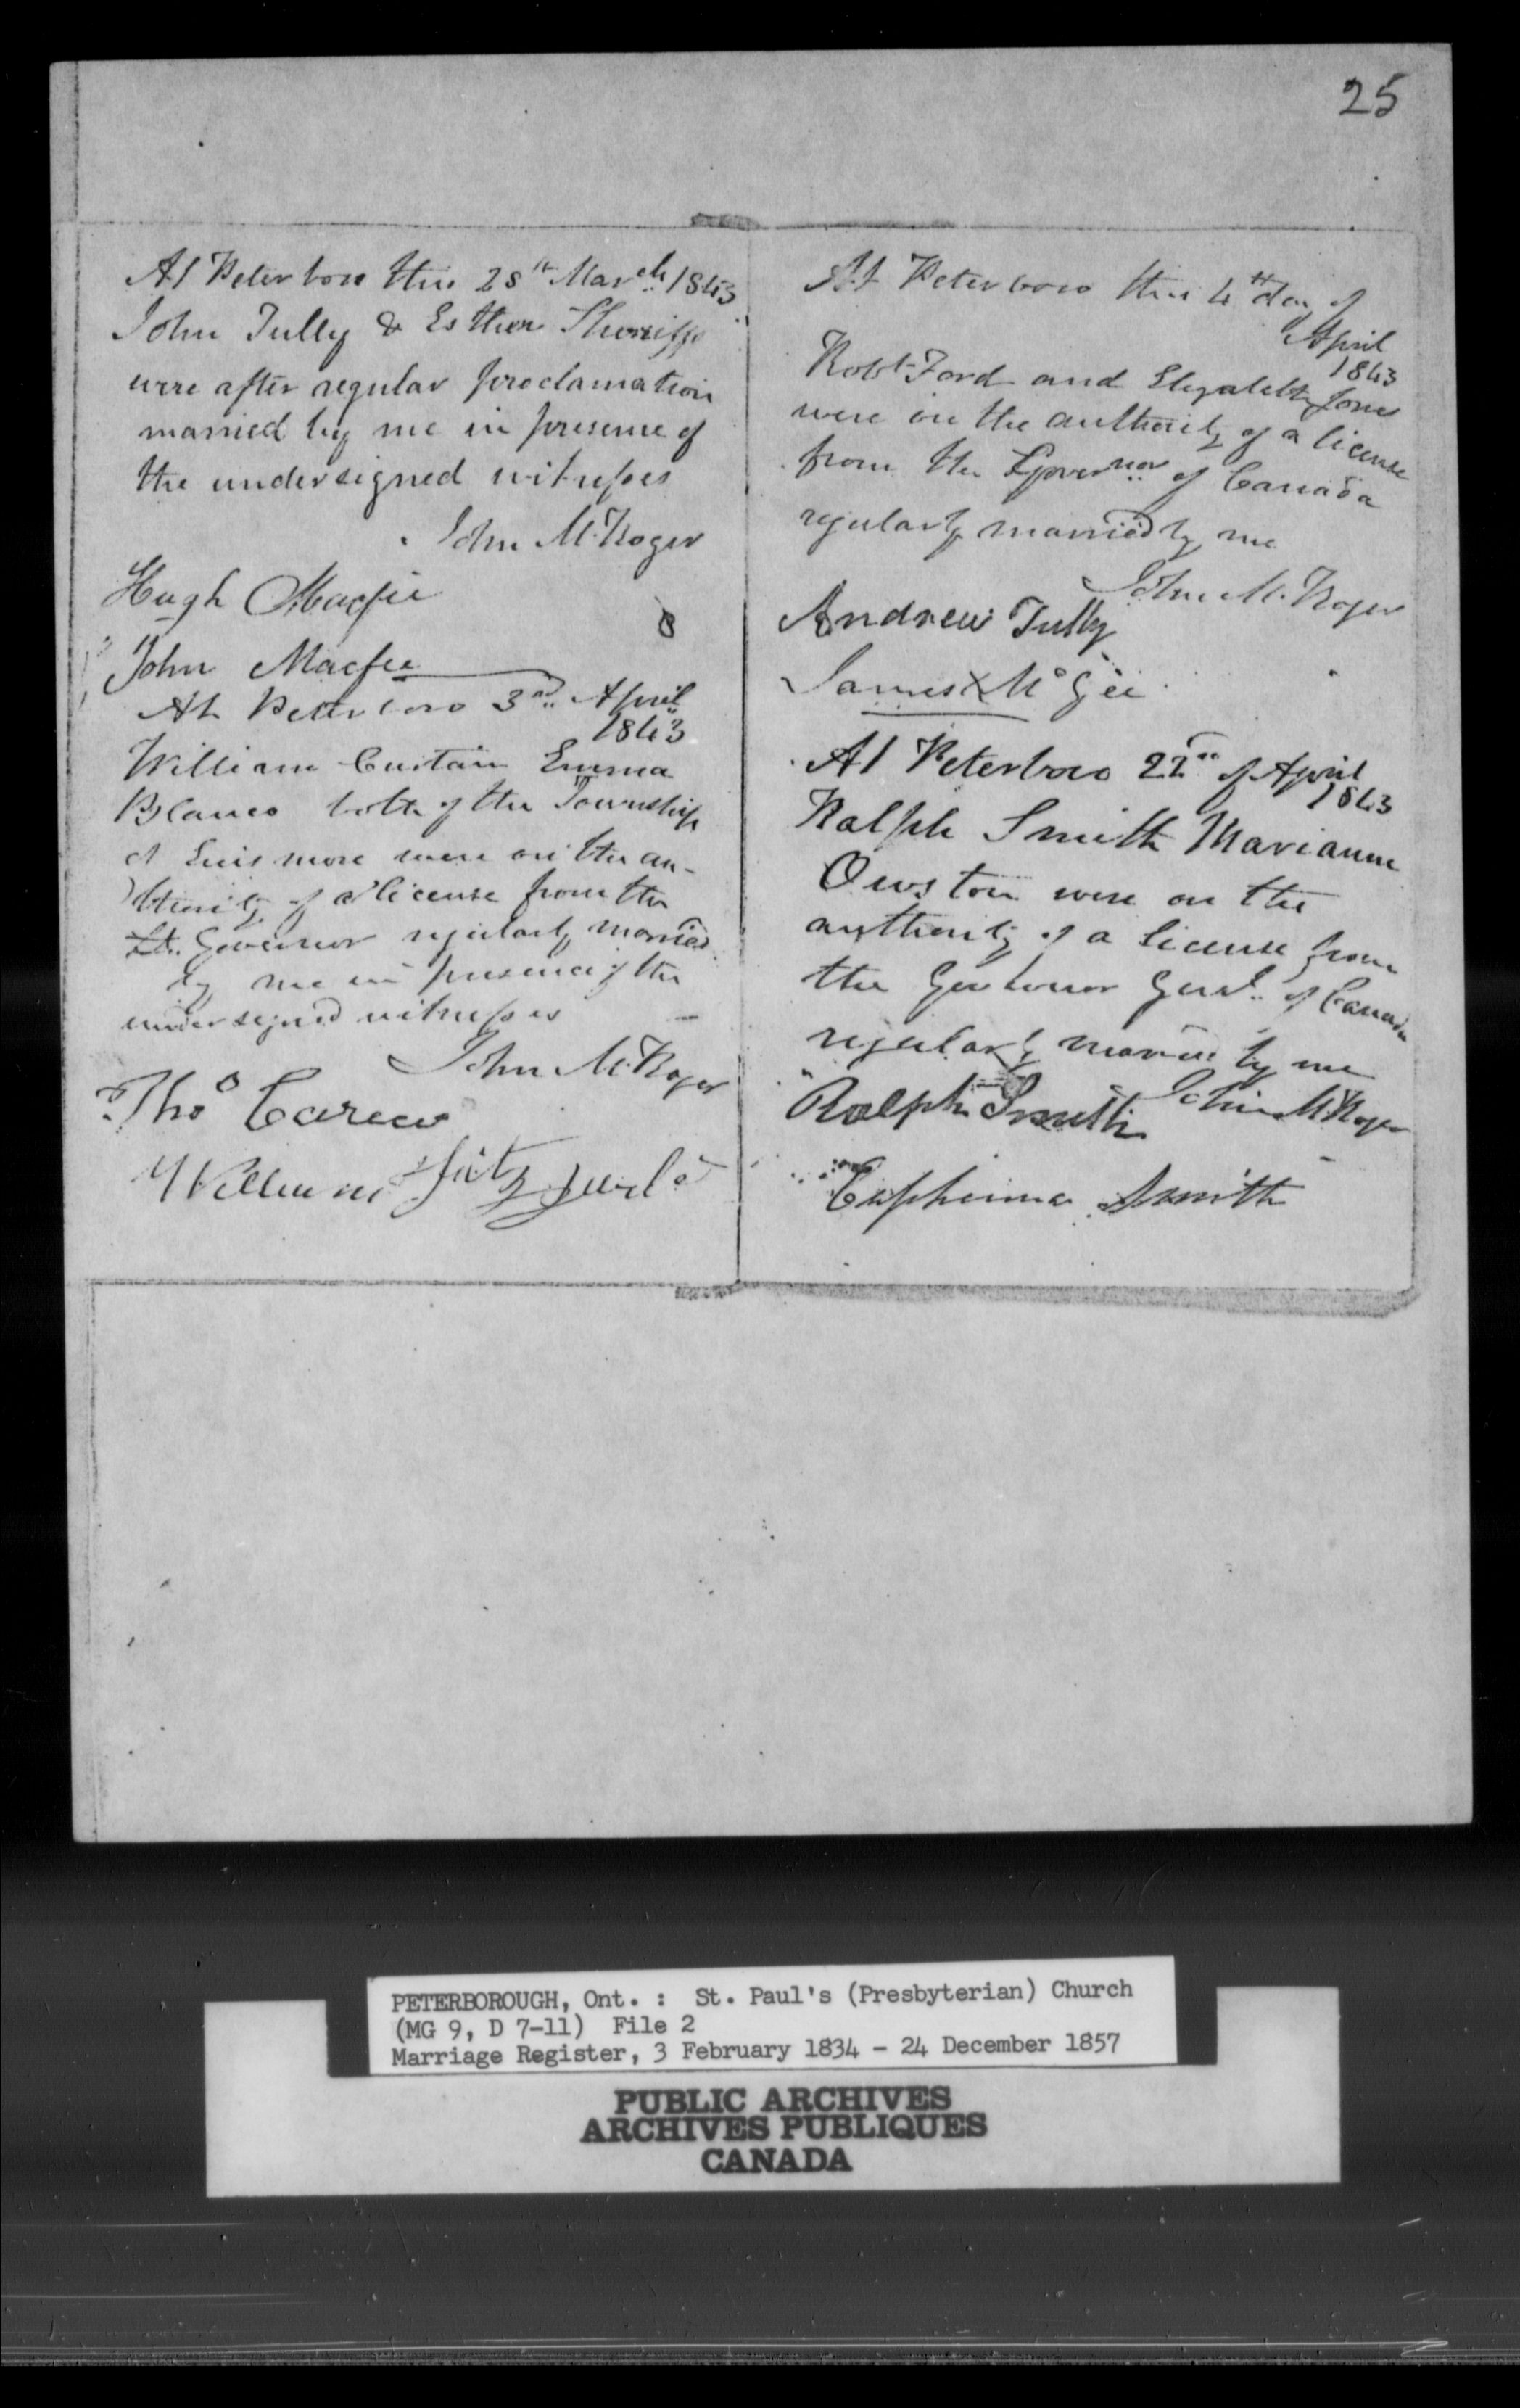 25
At Peterboro this 28th March 1843
John Tully & Esther Sherriff
were after regular proclamation
married by me in presence of
the undersigned witnesses
John M. Roger
Hugh Macfie
John Macfee
At Peterboro 3rd April
1843
William Curtain Emma
both of the Township
of were on the au-
thority of a license from the
Lt. Governor regularly married
by me in presence of the
undersigned witnesses
John M. Roger
Tho° Carew
William
At Peterboro this 4th day of
April
1843
Robt Ford and Elizabeth Jones
were on the authority of a license
from the Governor of Canada
regularly married by me
John M. Roger
Andrew Tully
James X McGee
At Peterboro 22nd of April
1843
Ralph Smith Marianne
Owston were on the
authority of a license from
the Governor Genl. of Canada
regularly married by me
John M. Roger
Ralph Smith
Euphemia Smith
PETERBOROUGH, Ont. : St. Paul's (Presbyterian) Church
(MG 9, D 7-11) File 2
Marriage Register, 3 February 1834 - 24 December 1857
PUBLIC ARCHIVES
ARCHIVES PUBLIQUES
CANADA